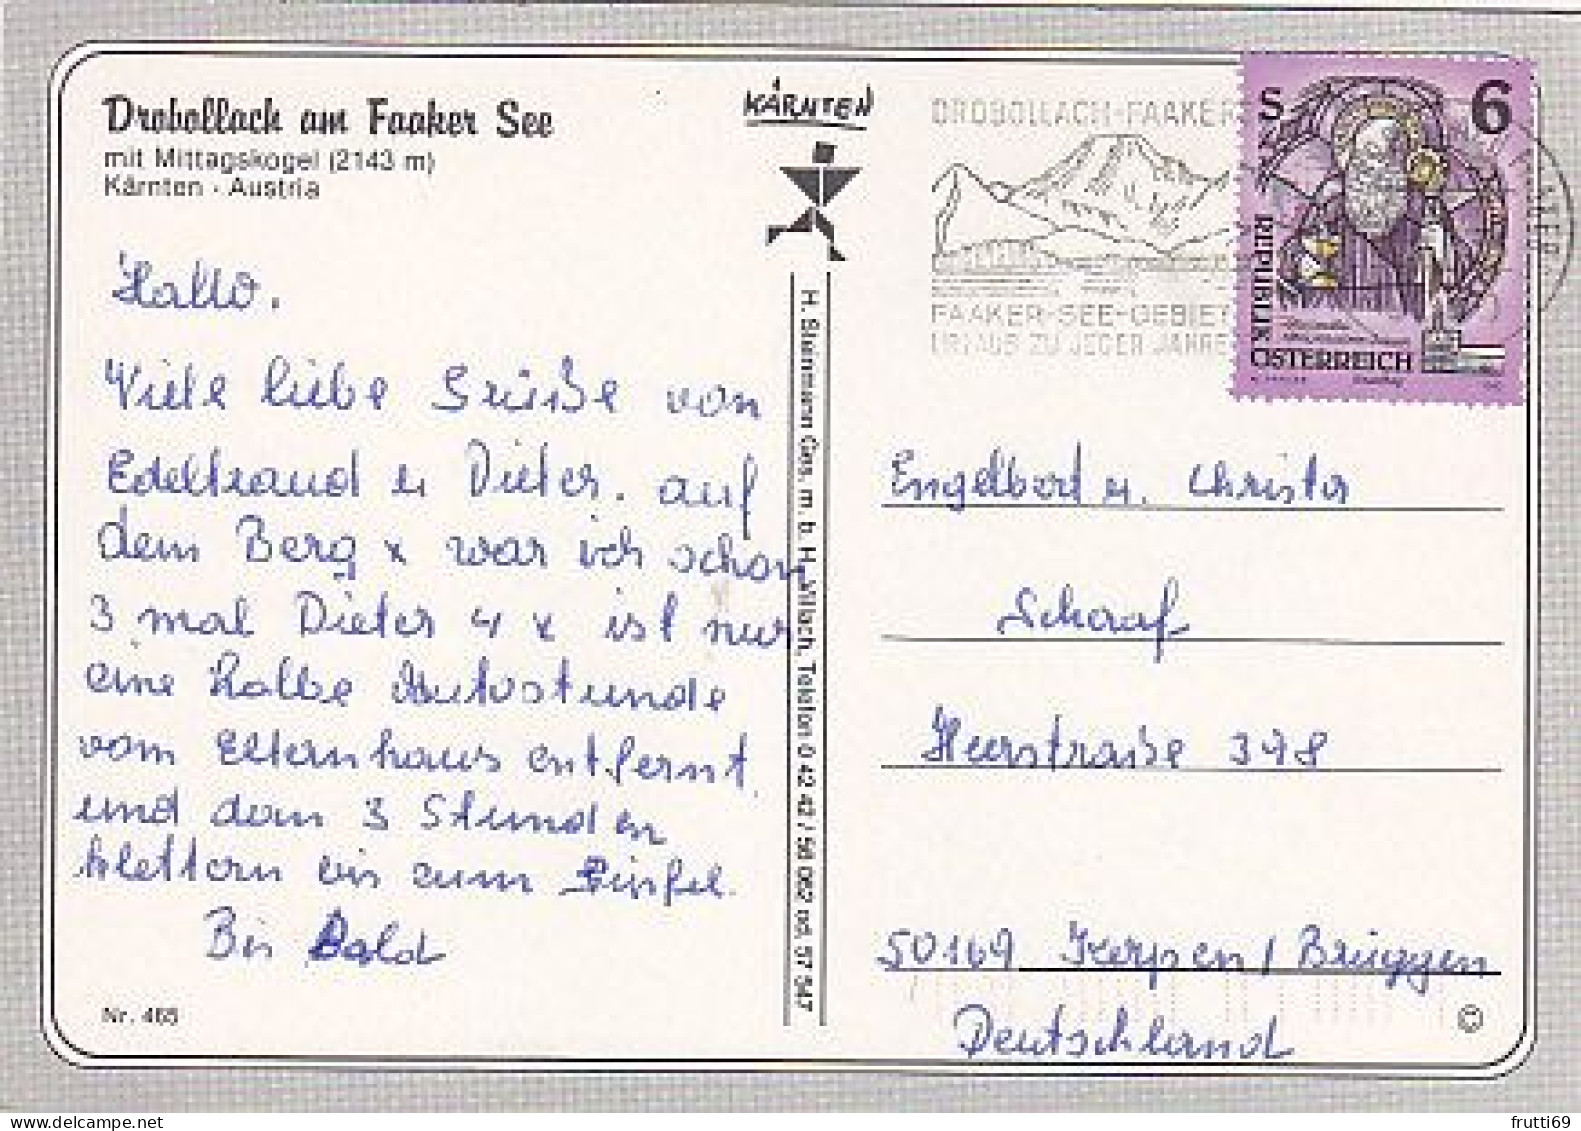 Drobollach am Faaker See
mit Mittagskogel (2143 m)
Kärnten - Austria
KÄRNTEN
DROBOLLACH-FAAKER
FAAKER-SEE-GEBIET
URLAUB ZU JEDER JAHRE
S 6
REPUBLIK
ÖSTERREICH
Hallo.
Viele liebe Grüße von
Edeltraud u Dieter. auf
dem Berg x war ich schon
3 mal Dieter 4 x ist nur
eine halbe Autostunde
vom Elternhaus entfernt
und dan 3 Stunden
klettern bis zum Gipfel.
Bis Bald
Nr. 465
H. Steinmann Ges. m. b. H., Villach, Telefon 0 42 42 / 56 062 od. 57 547
Engelbert u. Christa
Schaaf
Heerstraße 398
50169 Kerpen / Brüggen
Deutschland
©
frutti69